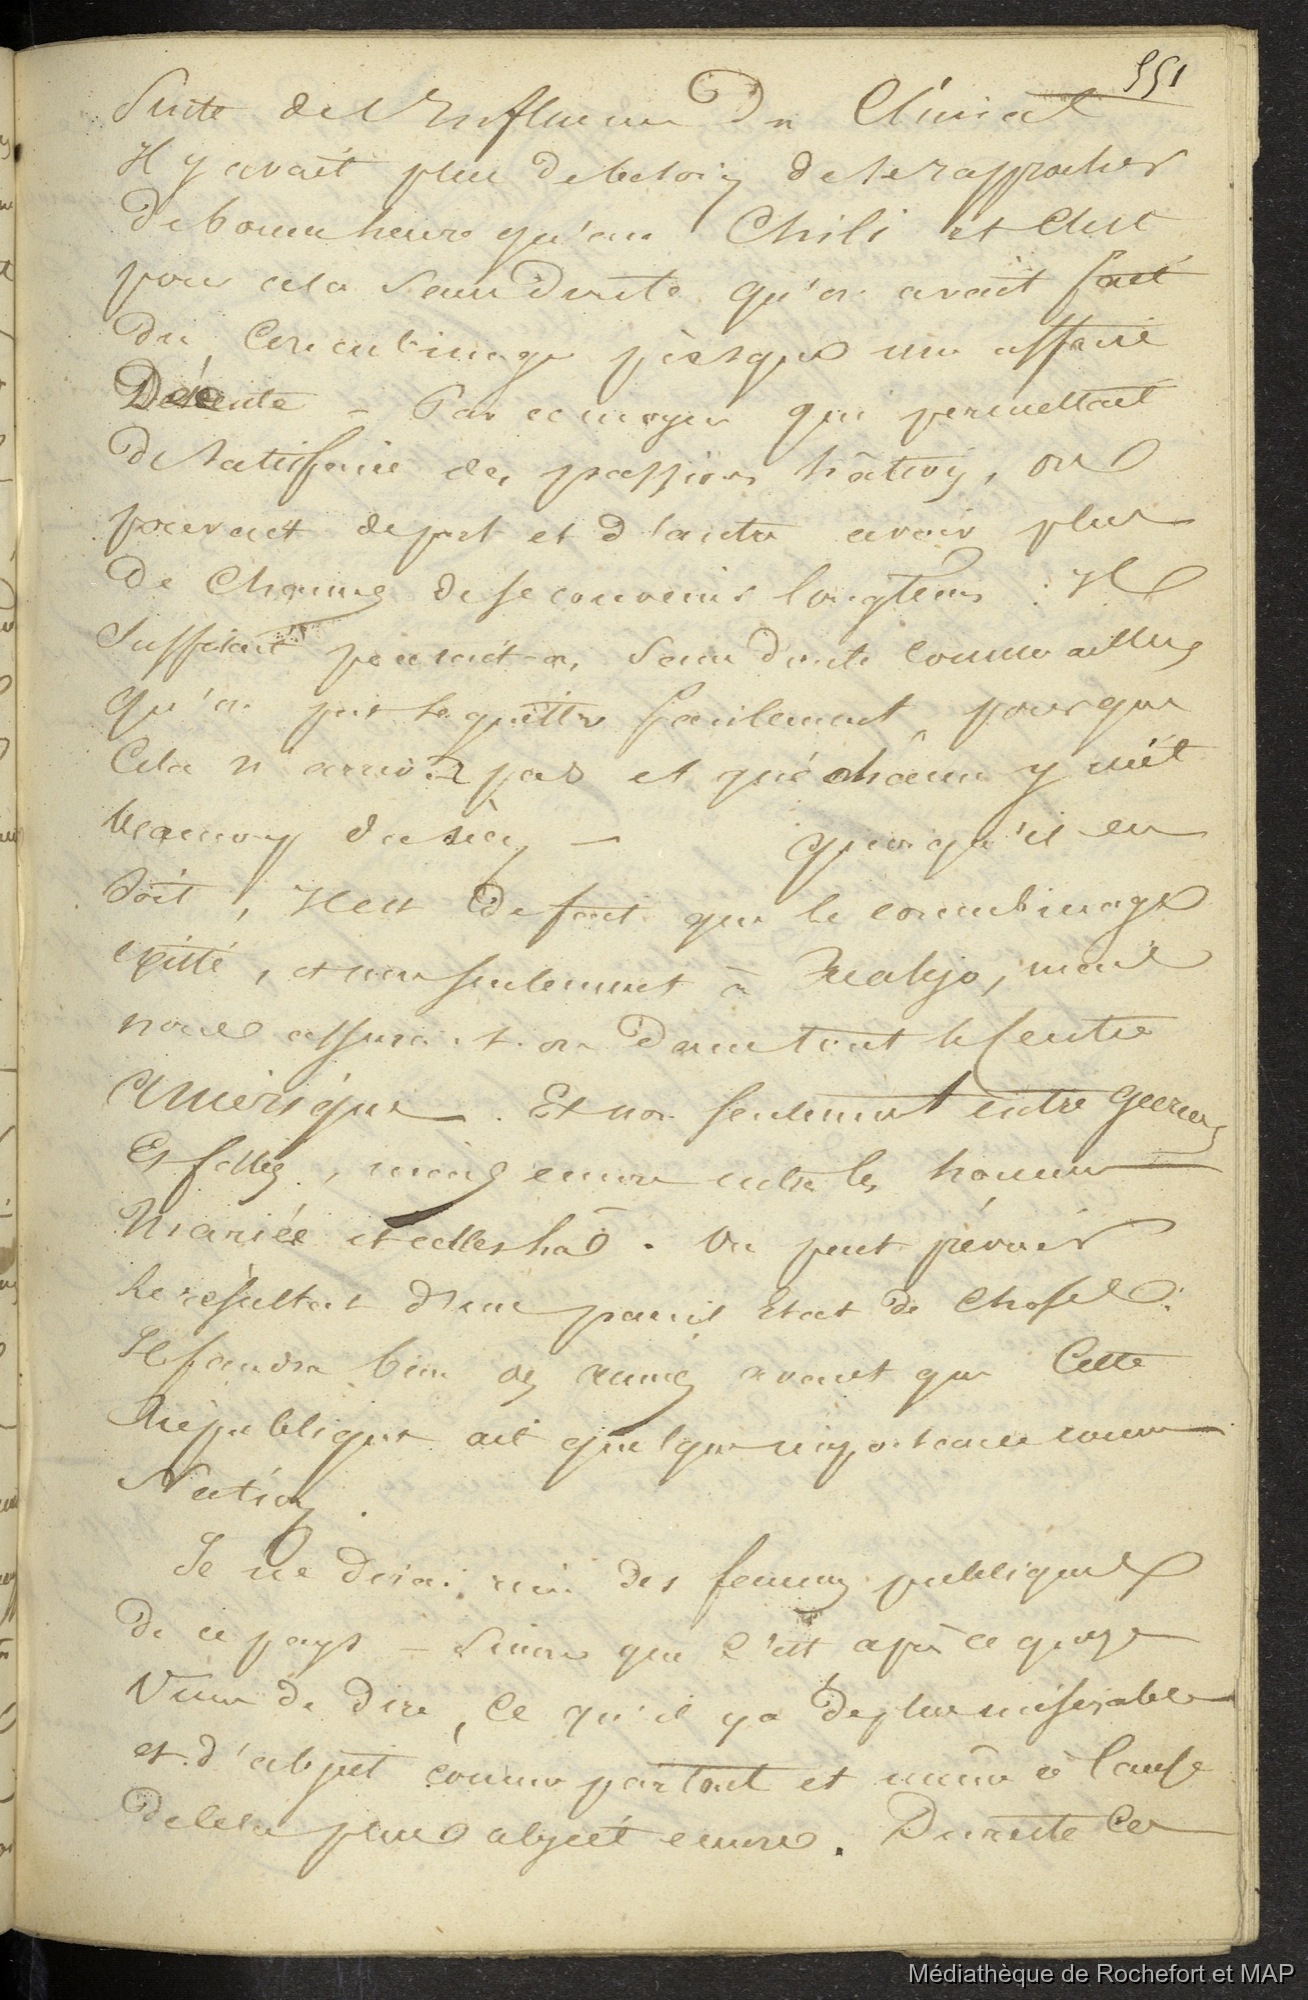 551
Suite de l'Influence Du Climat
Il y avait plus de besoin de se rapprocher
De bonne heure qu'au Chili et C'est
pour cela sans Doute qu'on avait fait
Du Concubinage presque une affaire
Décente - Par ce moyen qui permettait
De satisfaire des passions hâtives, on
pouvait de part et d'autre avoir plus
De Chances de se convenir longtems : Il
Suffisait pensait-on, sans doute comme ailleurs
Qu'on put se quitter facilement pour que
Cela n'arriva pas et que chacun y mît
beaucoup du sien — Quoiqu'il en
Soit, Il est De fait que le concubinage
existe, et non seulement à Realejo, mais
nous assurait-on Dans tout le Centre
Amérique. Et non seulement entre Garçons
Et filles, mais encore entre les hommes
Mariés et celles là. On peut prévoir
Le résultat d'un pareil Etat de Choses.
Il faudra bien des années avant que Cette
République ait quelque importance comme
Nation.
Je ne Dirai rien des femmes publiques
De ce pays - Sinon que C'est après ce que je
Viens de Dire, Ce qu'il y a De plus misérable
et d'abject comme partout et même à Cause
De cela plus abject encore. Du reste Ces
Médiathèque de Rochefort et MAP